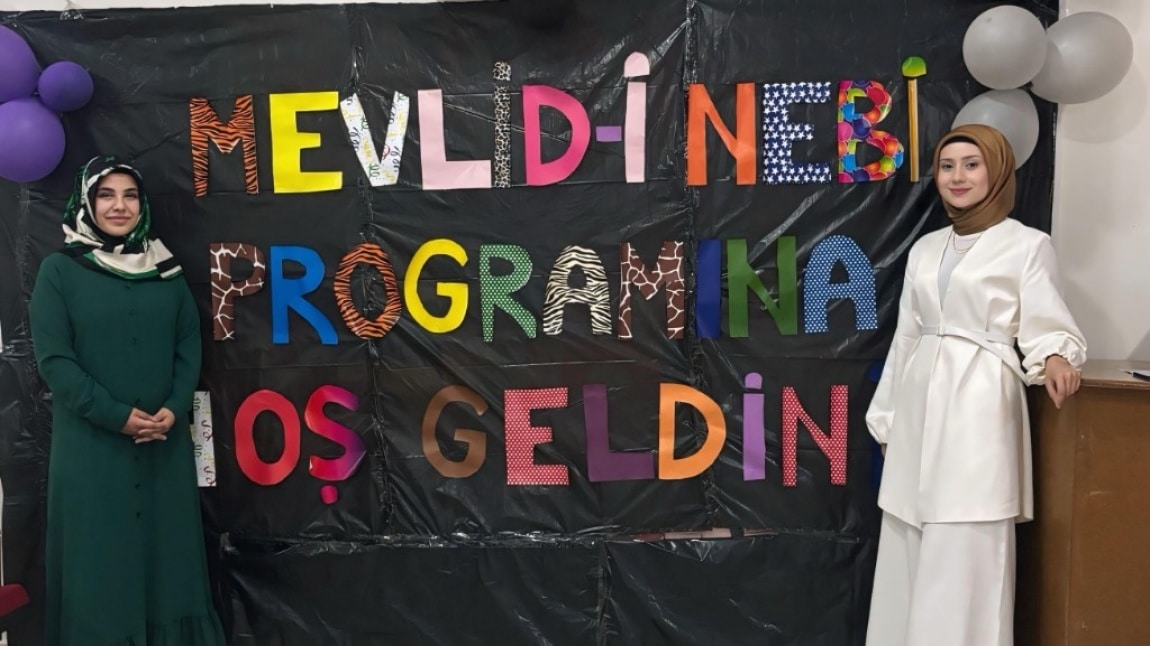 MEVLİD-İ NEBİ
PROGRAMINA
HOŞ GELDİN